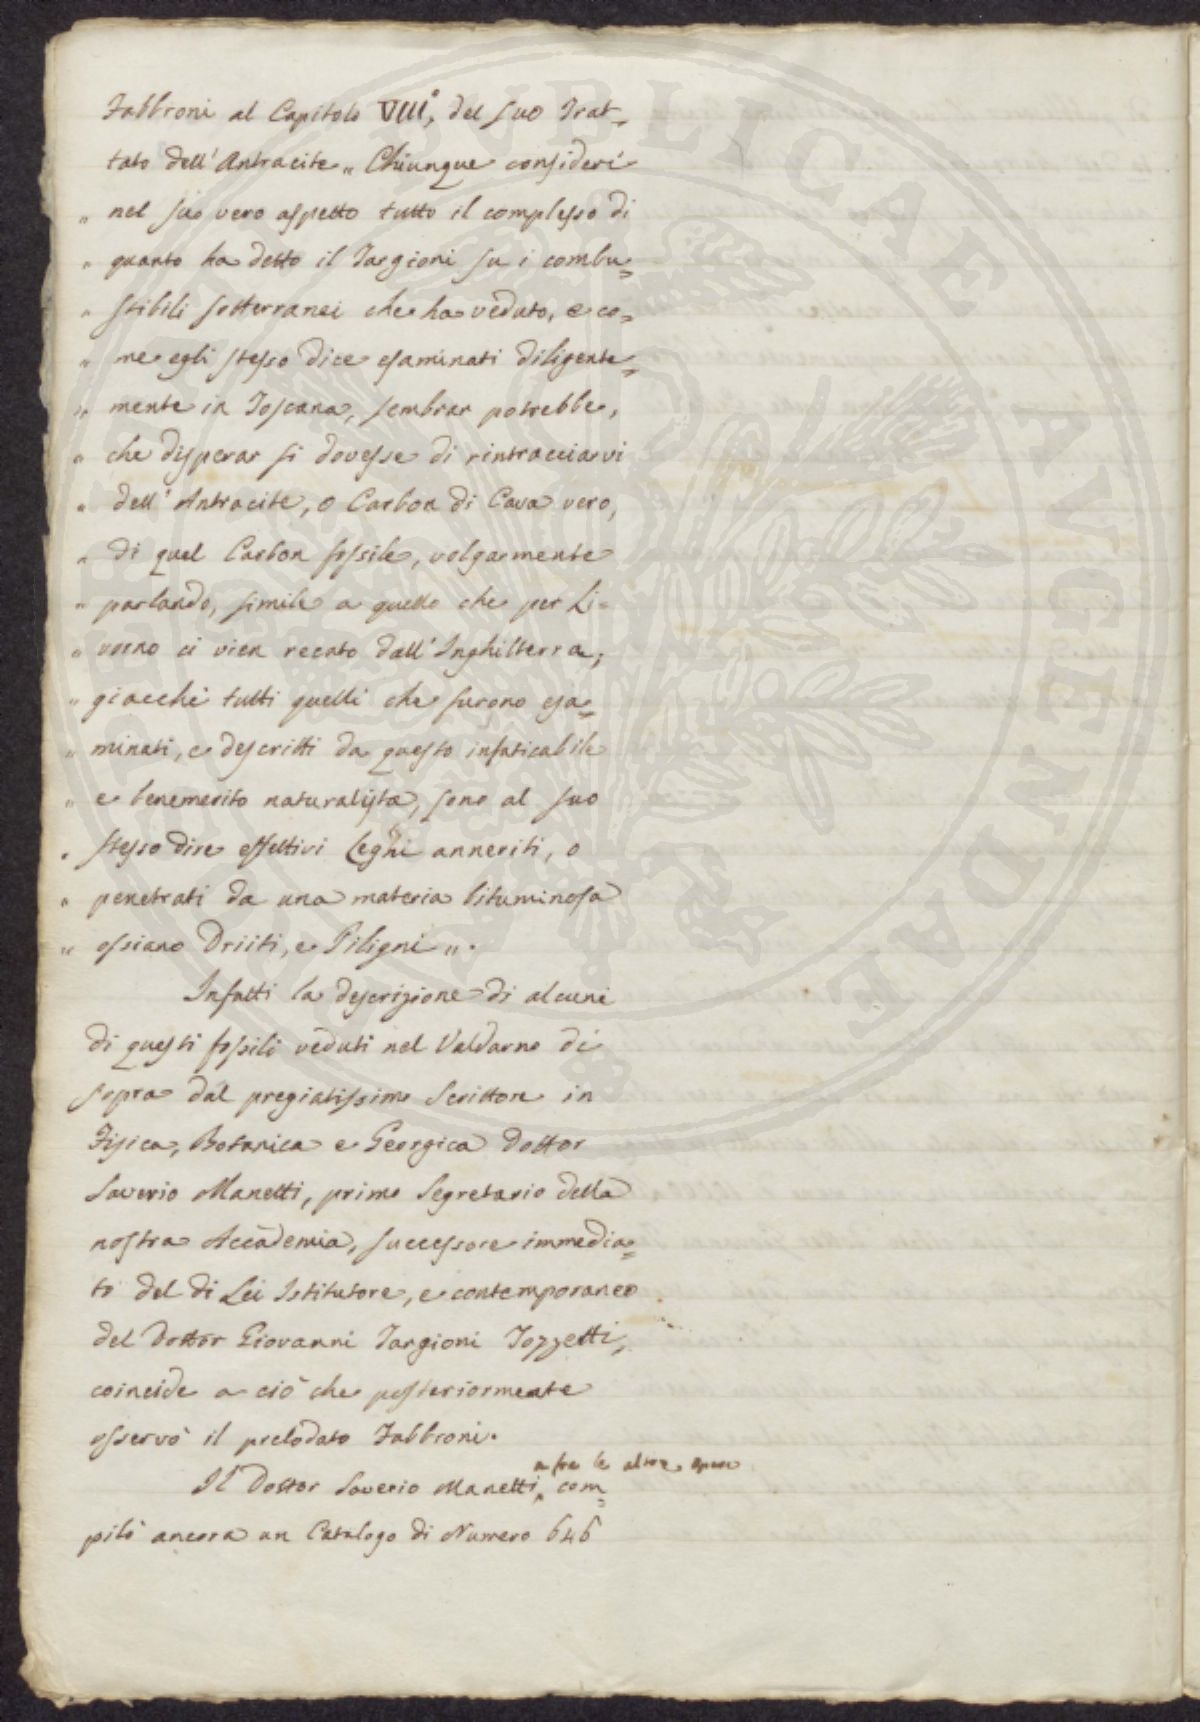 Fabbroni al Capitolo VIII°, del suo Trat=
tato dell'Antracite „ Chiunque consideri
„ nel suo vero aspetto tutto il complesso di
„ quanto ha detto il Targioni su i combu=
„ stibili sotterranei che ha veduto, e co=
„ me egli stesso dice esaminati diligente=
„ mente in Toscana, sembrar potrebbe,
„ che disperar si dovesse di rintracciarvi
„ dell'Antracite, o Carbon di Cava vero,
„ di quel Carbon fossile, volgarmente
„ parlando, simile a quello che per Li=
„ vorno ci vien recato dall'Inghilterra,
„ giacchè tutti quelli che furono esa=
„ minati, e descritti da questo infaticabile
„ e benemerito naturalista, sono al suo
„ stesso dire effettivi legni anneriti, o
„ penetrati da una materia bituminosa
„ ossiano Driiti, e Piligni „.
Infatti la descrizione di alcuni
di questi fossili veduti nel Valdarno di
sopra dal pregiatissimo Scrittore in
Fisica, Botanica e Georgica Dottor
Saverio Manetti, primo Segretario della
nostra Accademia, successore immedia=
to del di Lei Istitutore, e contemporaneo
del Dottor Giovanni Targioni Tozzetti,
coincide a ciò che posteriormente
osservò il prelodato Fabbroni.
a fra le altre opere
Il Dottor Saverio Manetti, com=
pilò ancora un Catalogo di Numero 646
PUBLICAE AUGENDAE